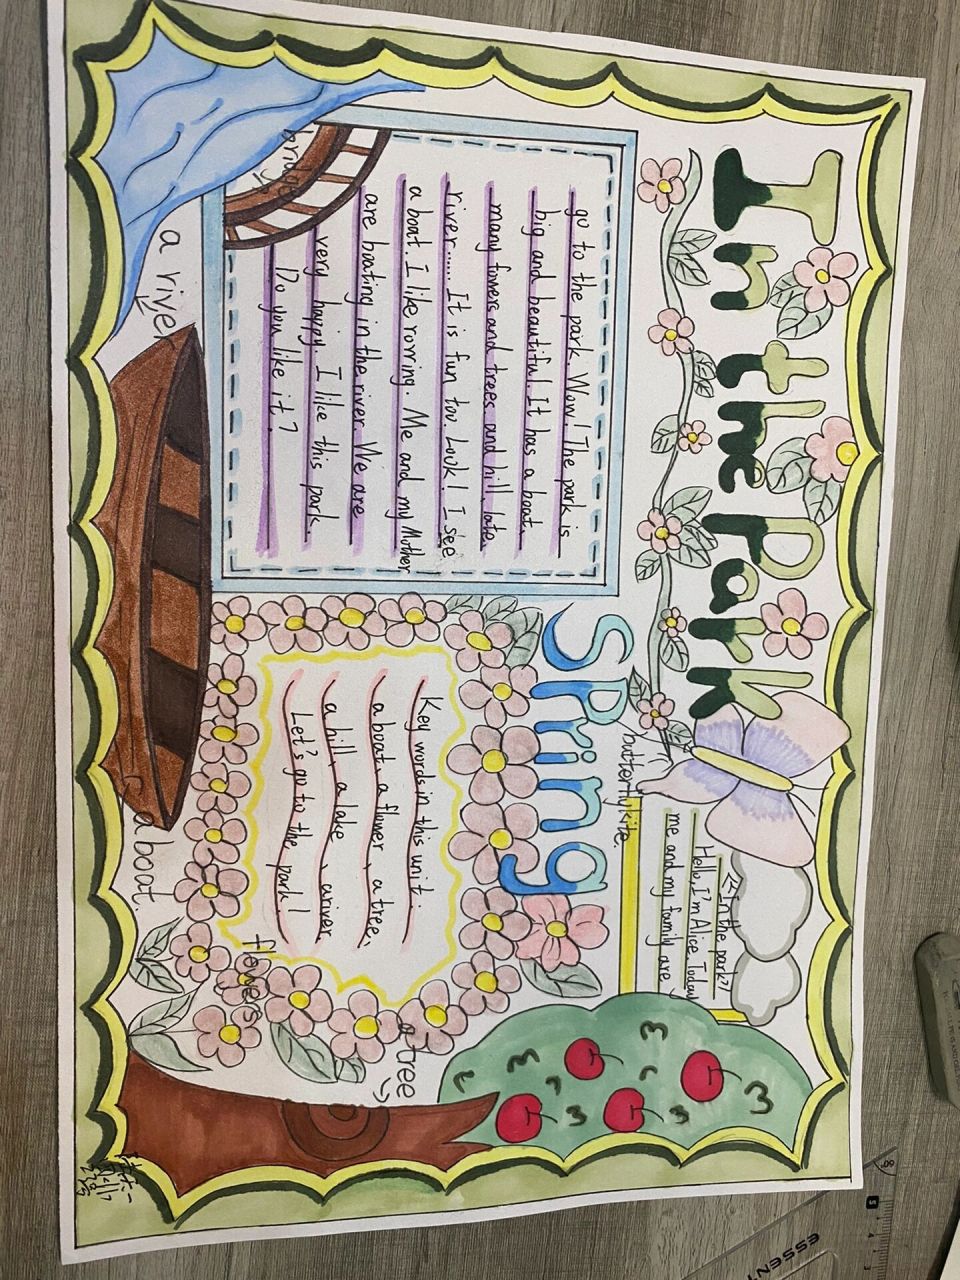 In the Park
<<In the park>>
Hello, I'm Alice. Today
me and my family are
butterfly kite.
Spring
go to the park. Wow! The park is
big and beautiful. It has a boat.
many flowers and trees and hill, late,
river...... It is fun too. Look! I see
a boat. I like rorring. Me and my Mother
are boating in the river. We are
very happy. I like this park.
Do you like it?
bridge
a river
Key words in this unit.
a boat、a flower、a tree、
a hill、a lake、a river
Let's go to the park!
flowers
a tree
a boat.
ESSENT